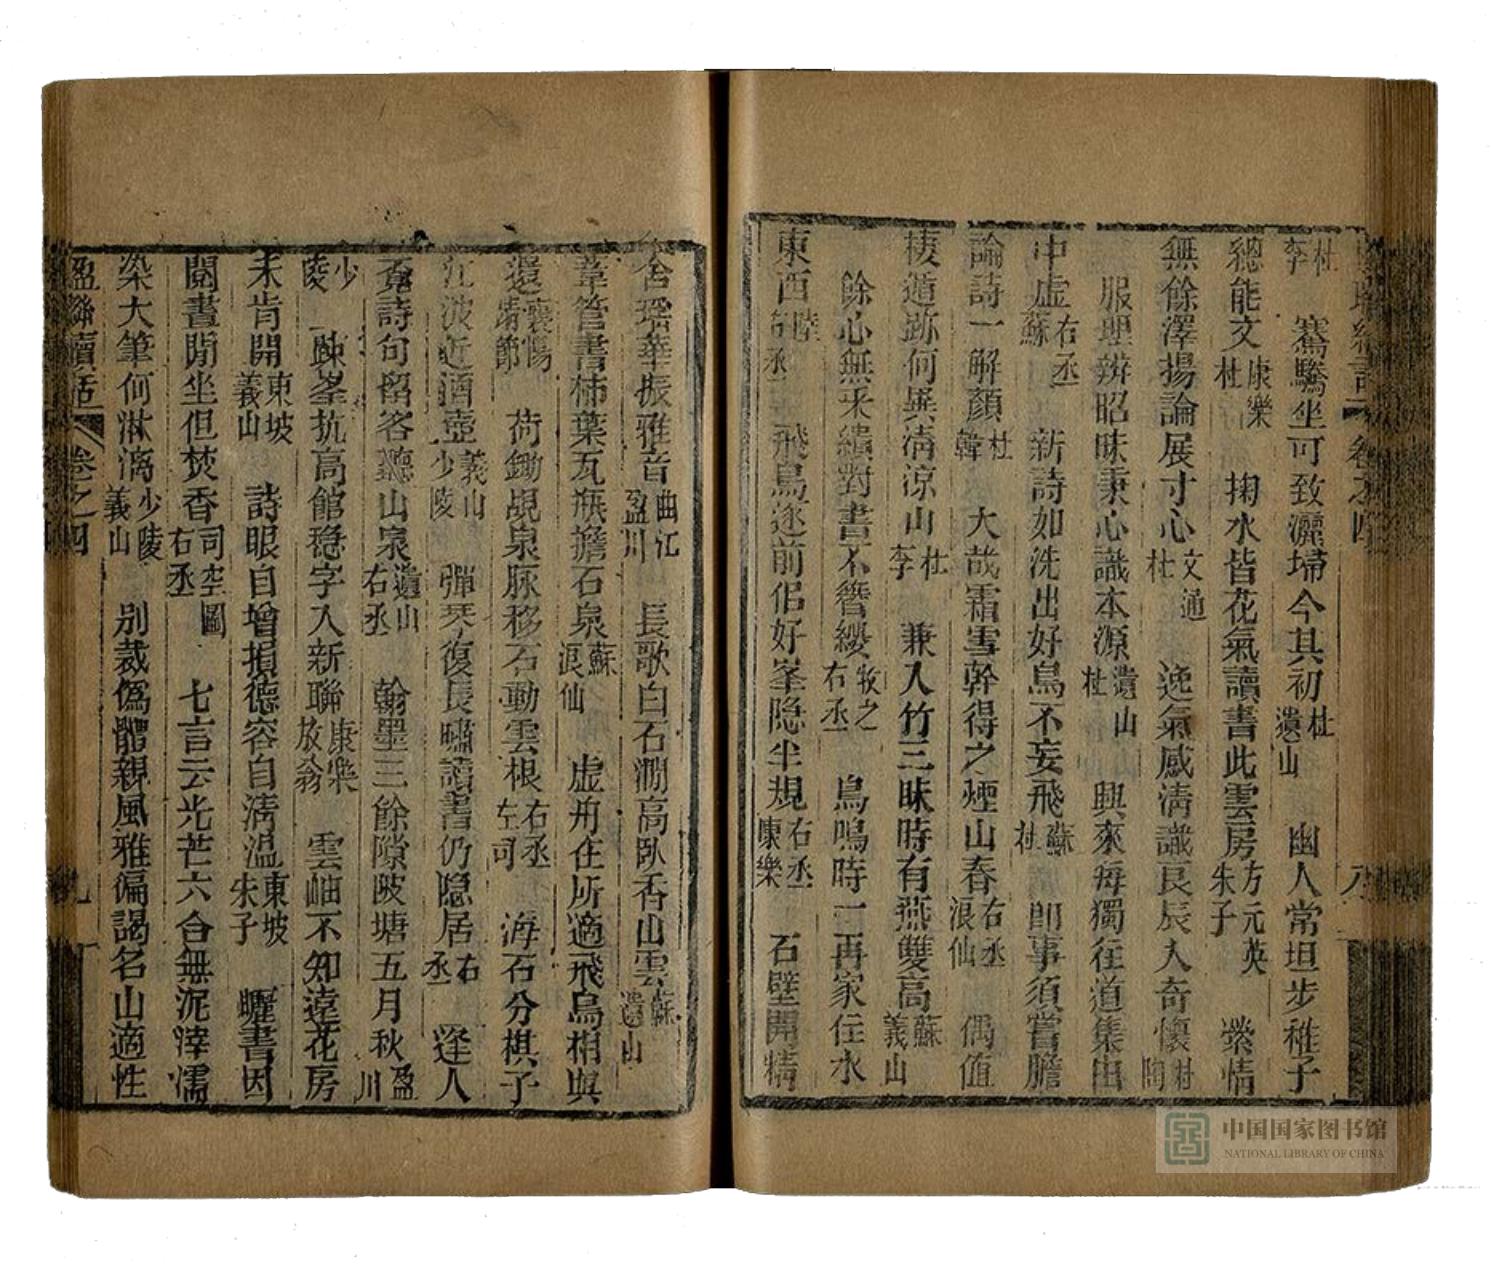 杜李　騫騰坐可致灑埽今其初杜遺山　幽人常坦步稚子
總能文康樂杜　掬水皆花氣讀書此雲房方元英朱子　縈情
無餘滓揚論展寸心文通杜　逸氣感清識良辰入奇懷謝陶
服理辨昭昧秉心識本源遺山杜　興來每獨往道集由
中虛右丞蘇　新詩如洗出好鳥不妄飛蘇杜　卽事須嘗膽
論詩一解顏杜韓　大哉霜雪幹得之煙山春右丞浪仙　偶值
棲遁跡何異清涼山杜李　兼入竹三昧時有燕雙高蘇義山
餘心無采繢對書不簪纓牧之右丞　鳥鳴時一再家住水
東西陸右丞　飛鳥逐前侶好峯隱半規右丞康樂　石壁開精
舍瑶華振雅音曲江盈川　長歌白石澗高臥香山雲蘇遺山
葦管書柿葉瓦瓶擔石泉蘇浪仙　虛舟任所適飛鳥相與
還襄陽靖節　荷鋤覘泉脈移石動雲根右丞左司　海石分棋子
江波近酒壺義山少陵　彈琴復長嘯讀書仍隱居右丞　逢人
覓詩句留客聽山泉遺山右丞　翰墨三餘隙陂塘五月秋盈川
少陵　疎峯抗高館穩字入新聯康樂放翁　雲岫不知遠花房
未肯開東坡義山　詩眼自增損德容自清溫東坡朱子　曬書因
閱畫閒坐但焚香司空圖右丞　七言云光芒六合無泥滓濡
染大筆何淋漓少陵義山　別裁僞體親風雅徧謁名山適性
盈聯續話　卷之四　九
中国国家图书馆
NATIONAL LIBRARY OF CHINA